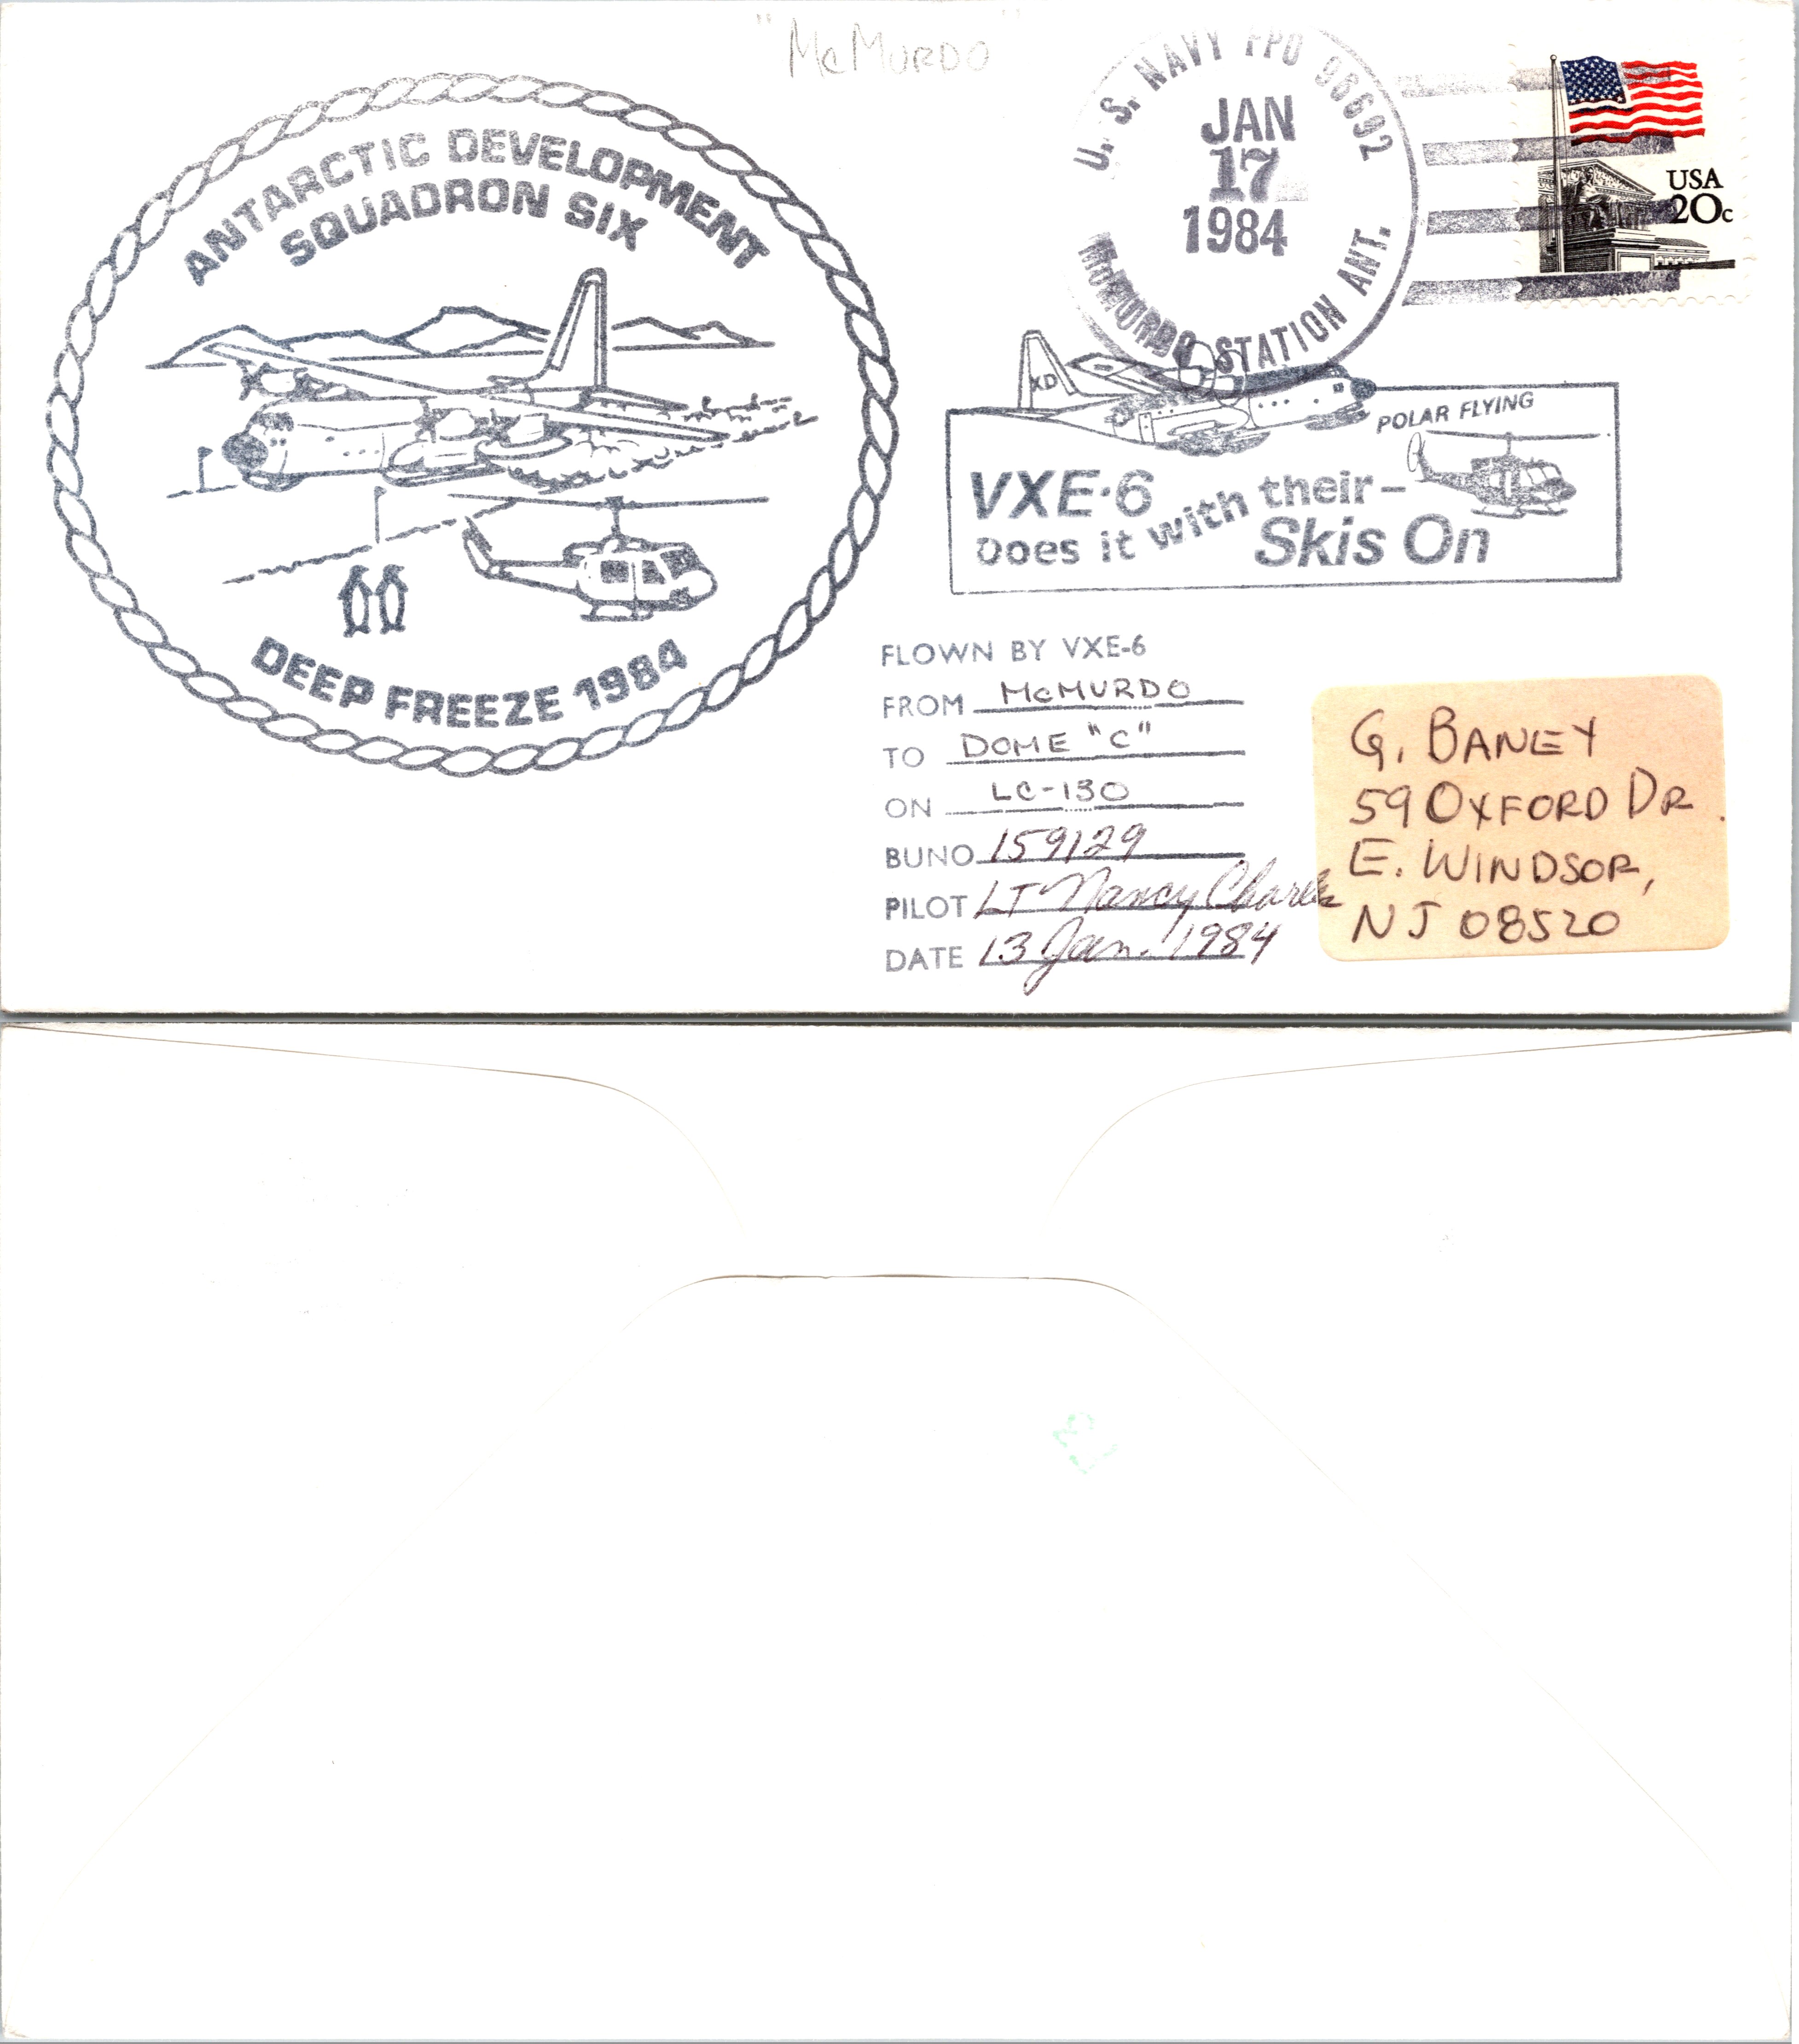 "McMURDO"
ANTARCTIC DEVELOPMENT
SQUADRON SIX
DEEP FREEZE 1984
U. S. NAVY FPO 96692
JAN
17
1984
McMURDO STATION ANT.
USA
20c
XD
POLAR FLYING
VXE-6
Does it with their-
Skis On
FLOWN BY VXE-6
FROM McMURDO
TO DOME "C"
ON LC-130
BUNO 159129
PILOT LT Nancy
DATE 13 Jan. 1984
G. BANEY
59 OXFORD DR.
E. WINDSOR,
NJ 08520